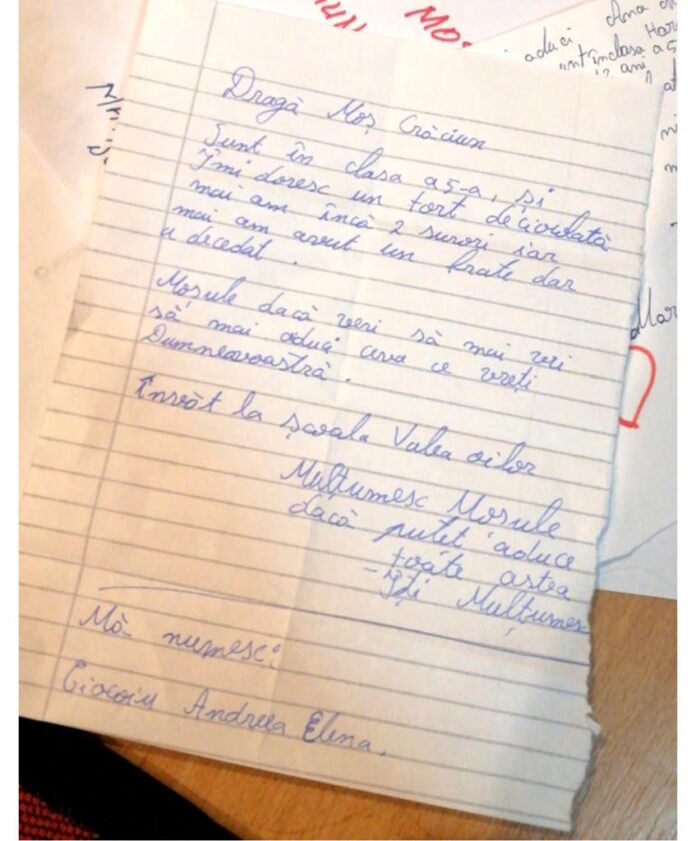 Mo
aduci Ana
Dragă Moș Crăciun
Sunt în clasa a5-a, și
Îmi doresc un tort de ciocolată
mai am încă 2 surori iar
mai am avut un frate dar
a decedat.
Moșule dacă vrei să mai vii
să mai aduci ceva ce vreți
Dumneavoastră.
Învăt la școala Valea oilor
Mulțumesc Mosule
dacă putet aduce
toate astea
Mulțumes
Mă numesc:
Ciocoiu Andreea Elena.
Mar